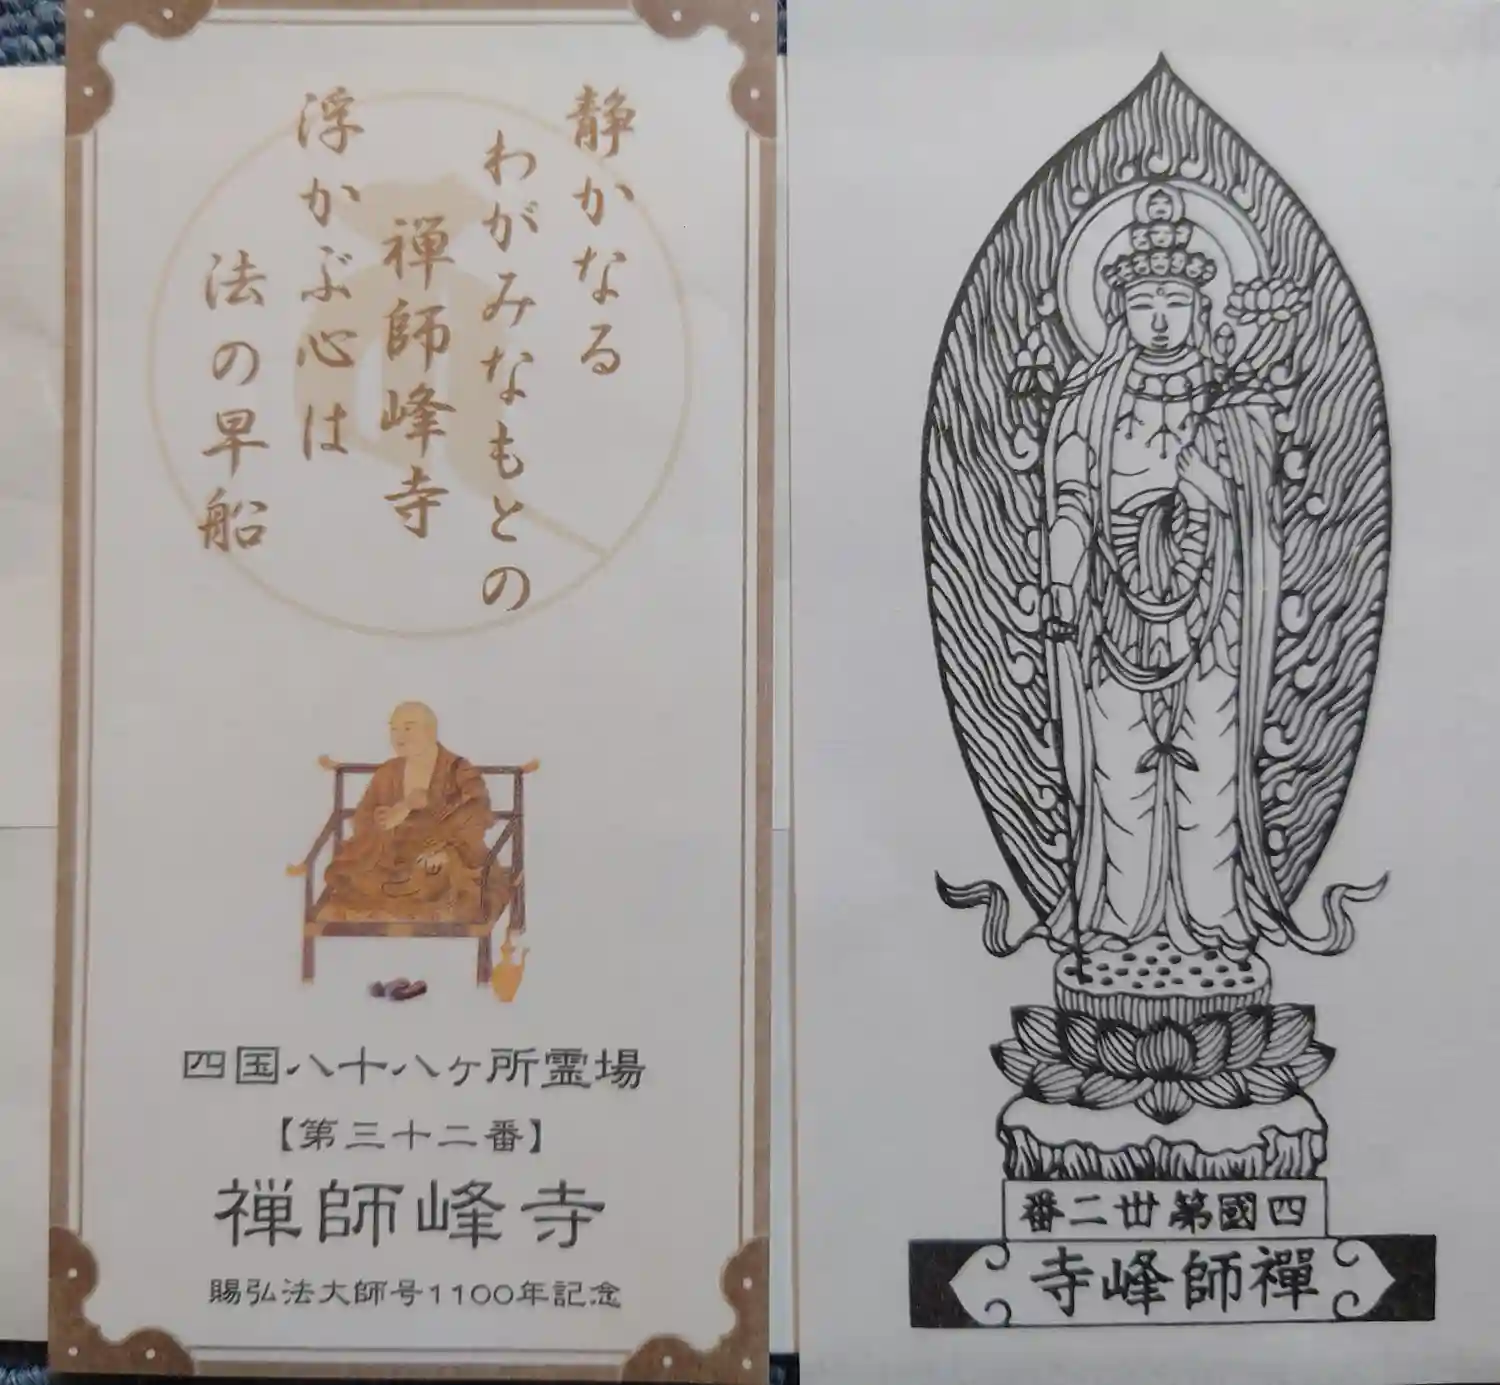 静かなる
わがみなもとの
禅師峰寺
浮かぶ心は
法の早船
四国八十八ヶ所霊場
【第三十二番】
禅師峰寺
賜弘法大師号1100年記念
番二丗第國四
寺峰師禪